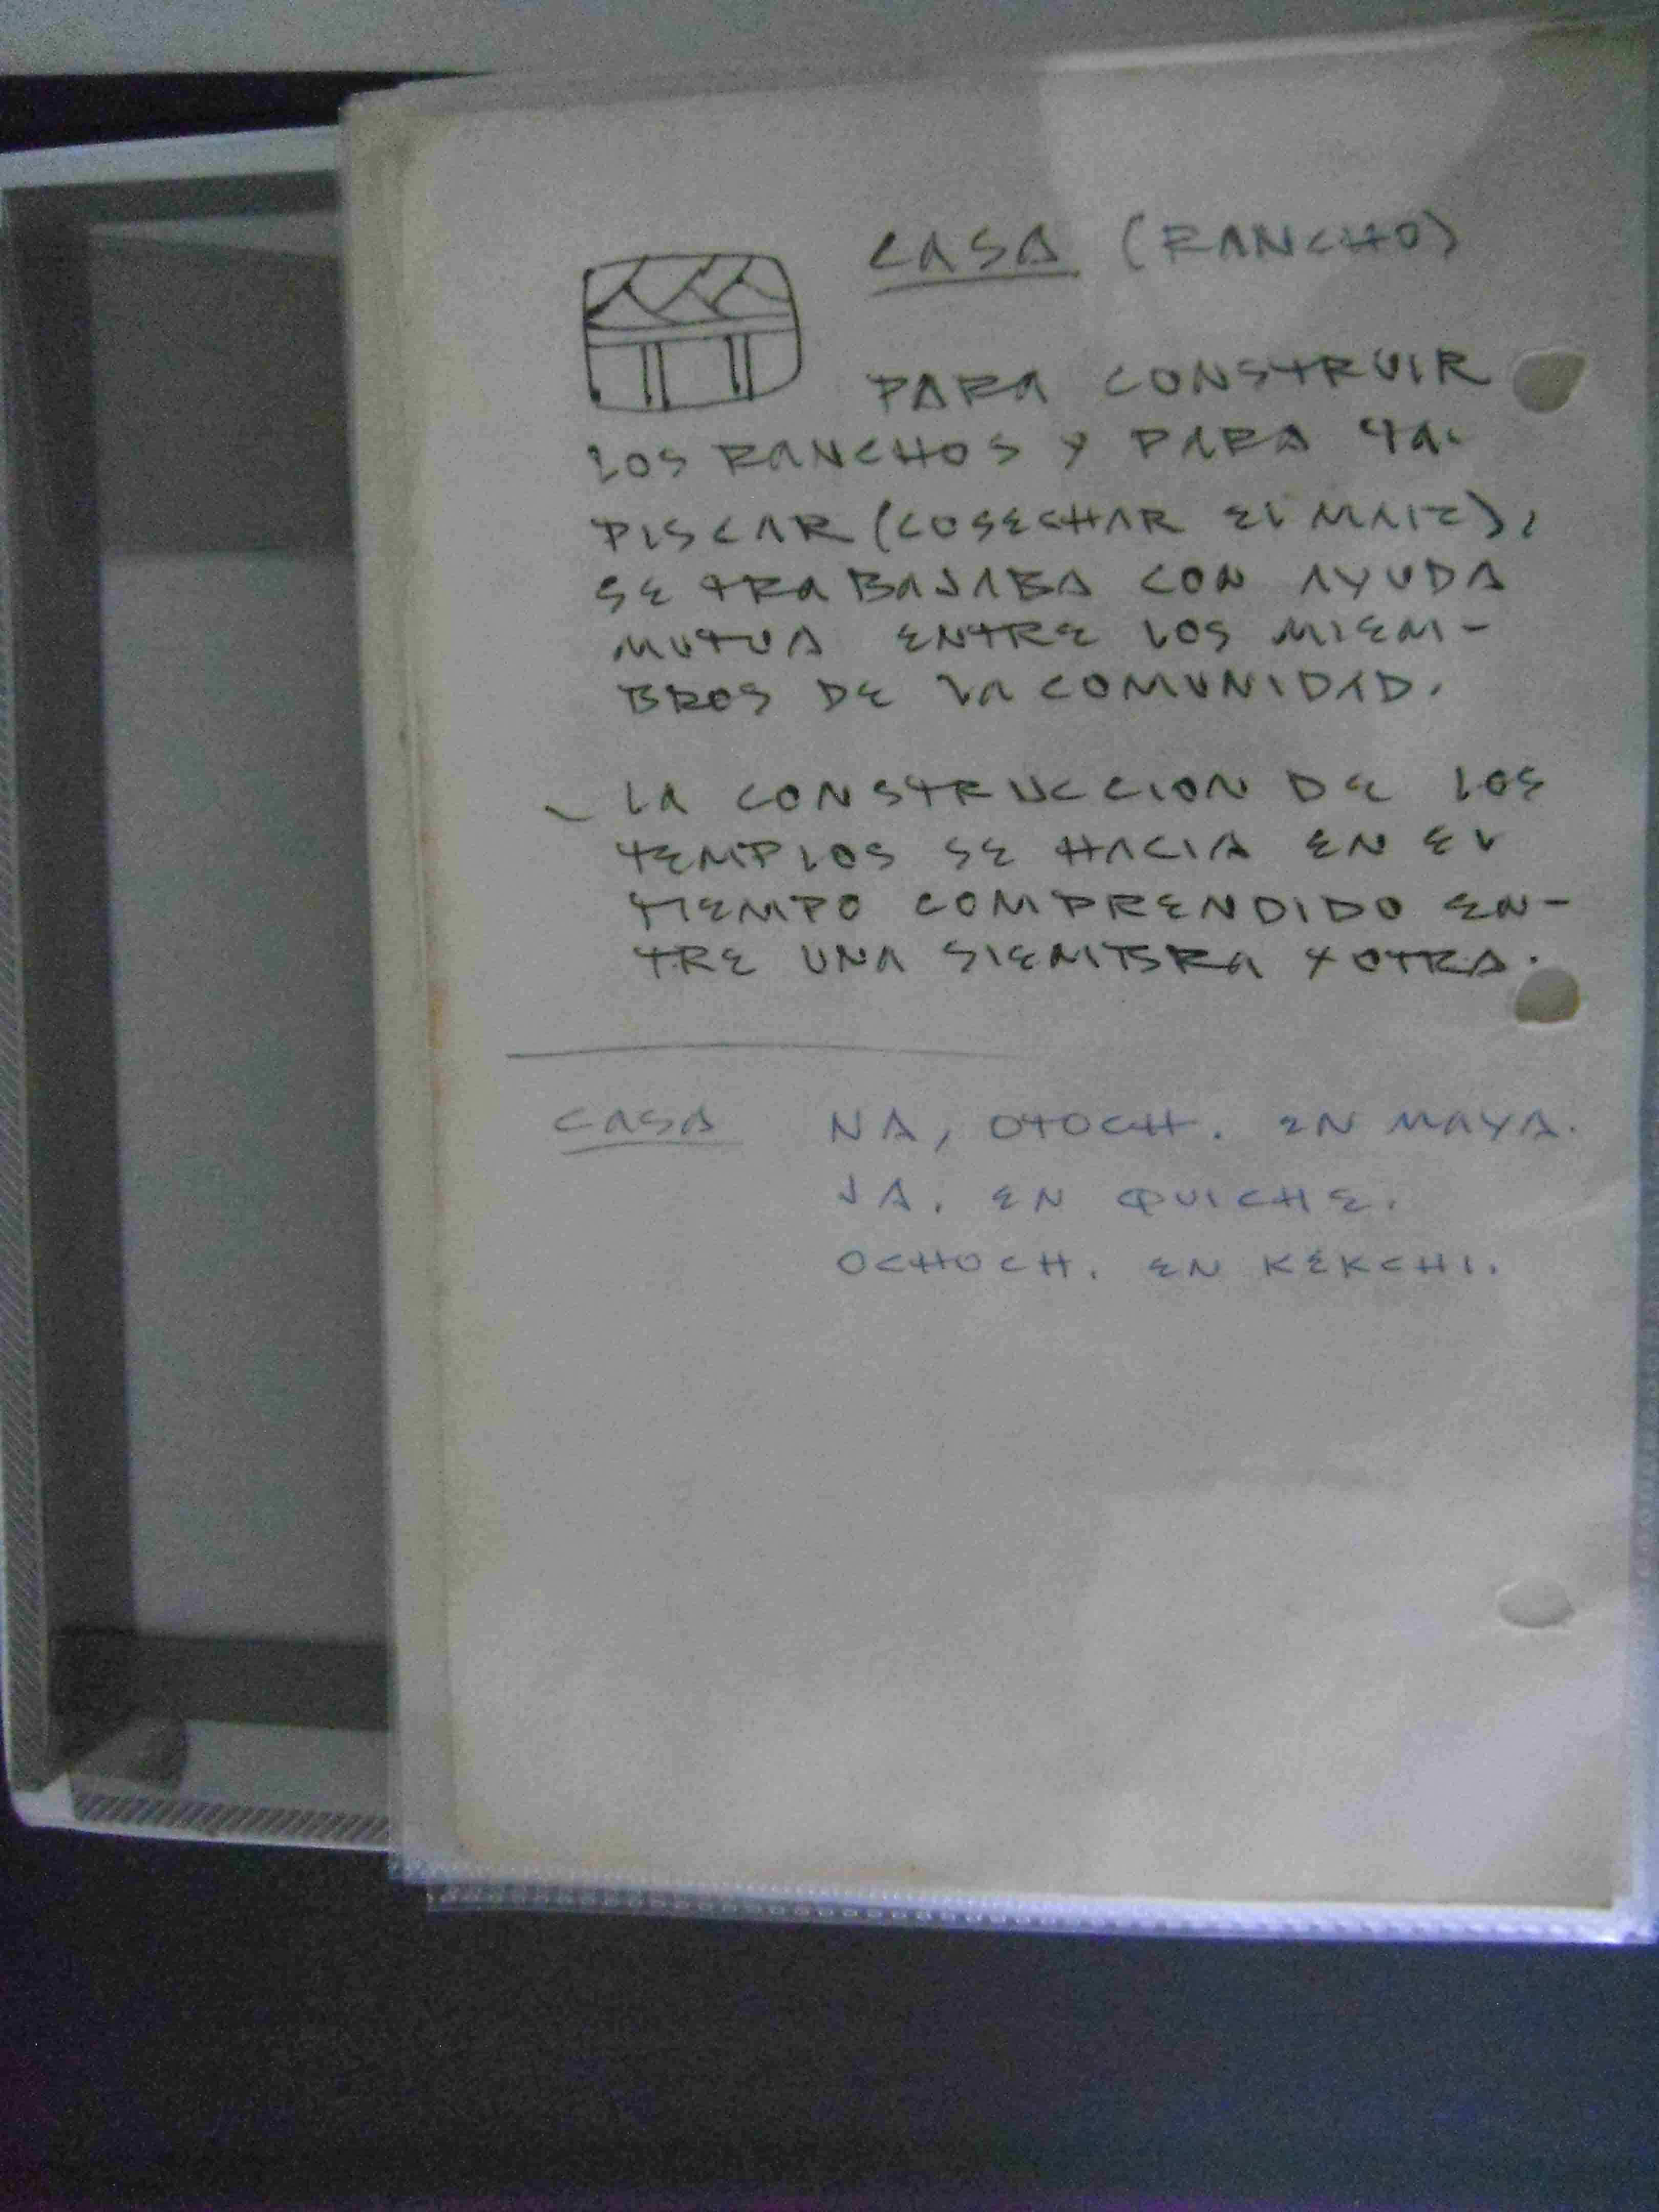 CASA (RANCHO)
PARA CONSTRUIR
LOS RANCHOS Y PARA TA-
PISCAR (COSECHAR EL MAIZ),
SE TRABAJABA CON AYUDA
MUTUA ENTRE LOS MIEM-
BROS DE LA COMUNIDAD.
LA CONSTRUCCION DE LOS
TEMPLOS SE HACIA EN EL
TIEMPO COMPRENDIDO EN-
TRE UNA SIEMBRA Y OTRA.
CASA NA, OTOCH. EN MAYA.
JA. EN QUICHE.
OCHOCH. EN KEKCHI.